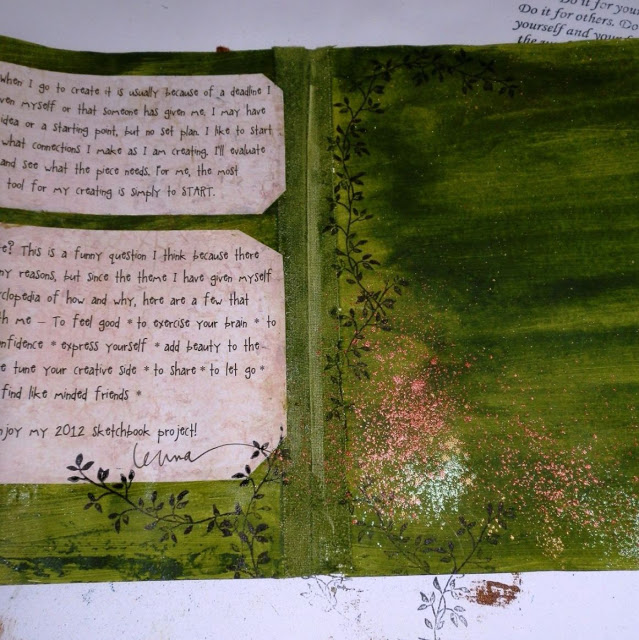 Do it for you
Do it for others. Do
yourself and your
the
when I go to create it is usually because of a deadline I
ven myself or that someone has given me. I may have
idea or a starting point, but no set plan. I like to start
what connections I make as I am creating. I'll evaluate
and see what the piece needs. For me, the most
tool for my creating is simply to START.
e? This is a funny question I think because there
ny reasons, but since the theme I have given myself
clopedia of how and why, here are a few that
th me – To feel good * to exercise your brain * to
nfidence * express yourself * add beauty to the
e tune your creative side * to share * to let go *
find like minded friends *
njoy my 2012 sketchbook project!